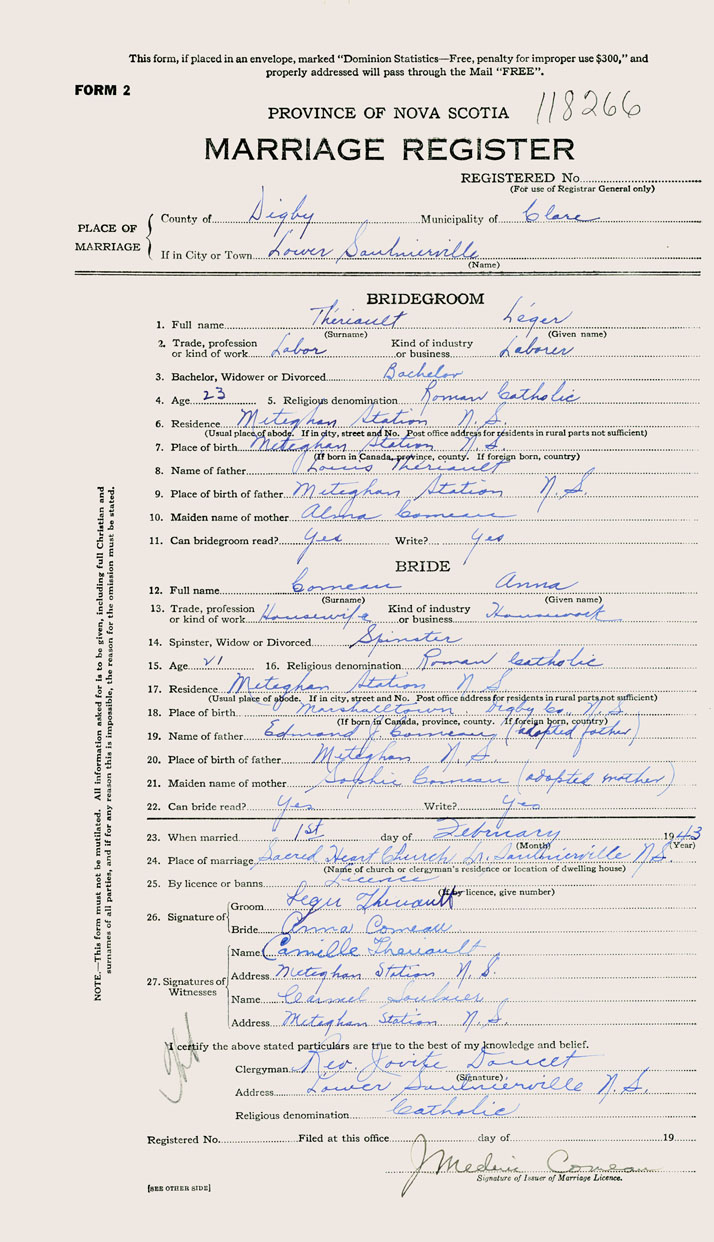 This form, if placed in an envelope, marked "Dominion Statistics—Free, penalty for improper use $300," and
properly addressed will pass through the Mail "FREE".
FORM 2
PROVINCE OF NOVA SCOTIA 118266
MARRIAGE REGISTER
REGISTERED No.
(For use of Registrar General only)
PLACE OF MARRIAGE
County of Digby Municipality of Clare
If in City or Town Lower Saulnierville
(Name)
BRIDEGROOM
1. Full name Thériault Léger
(Surname) (Given name)
2. Trade, profession or kind of work Labor Kind of industry or business Laborer
3. Bachelor, Widower or Divorced Bachelor
4. Age 23 5. Religious denomination Roman Catholic
6. Residence Meteghan Station N.S.
(Usual place of abode. If in city, street and No. Post office address for residents in rural parts not sufficient)
7. Place of birth Meteghan Station N.S.
(If born in Canada, province, county. If foreign born, country)
8. Name of father Louis Theriault
9. Place of birth of father Meteghan Station N.S.
10. Maiden name of mother Alma Comeau
11. Can bridegroom read? Yes Write? Yes
BRIDE
12. Full name Comeau Anna
(Surname) (Given name)
13. Trade, profession or kind of work Housewife Kind of industry or business Housework
14. Spinster, Widow or Divorced Spinster
15. Age 21 16. Religious denomination Roman Catholic
17. Residence Meteghan Station N S
(Usual place of abode. If in city, street and No. Post office address for residents in rural parts not sufficient)
18. Place of birth Marshalltown Digby Co., N.S.
(If born in Canada, province, county. If foreign born, country)
19. Name of father Edmond J. Comeau (adopted father)
20. Place of birth of father Meteghan N.S.
21. Maiden name of mother Sophie Comeau (adopted mother)
22. Can bride read? Yes Write? Yes
23. When married 1st day of February 1943
(Month) (Year)
24. Place of marriage Sacred Heart Church Lr. Saulnierville N.S.
(Name of church or clergyman's residence or location of dwelling house)
25. By licence or banns Licence
(If by licence, give number)
26. Signature of
Groom Leger Theriault
Bride Anna Comeau
27. Signatures of Witnesses
Name Camille Theriault
Address Meteghan Station N.S.
Name Carmel Saulnier
Address Meteghan Station N.S.
I certify the above stated particulars are true to the best of my knowledge and belief.
Clergyman Rev. Jovite Doucet
(Signature)
Address Lower Saulnierville N.S.
Religious denomination Catholic
Registered No. Filed at this office day of 19
J Mederic Comeau
Signature of Issuer of Marriage Licence.
[SEE OTHER SIDE]
NOTE.—This form must not be mutilated. All information asked for is to be given, including full Christian and
surnames of all parties, and if for any reason this is impossible, the reason for the omission must be stated.